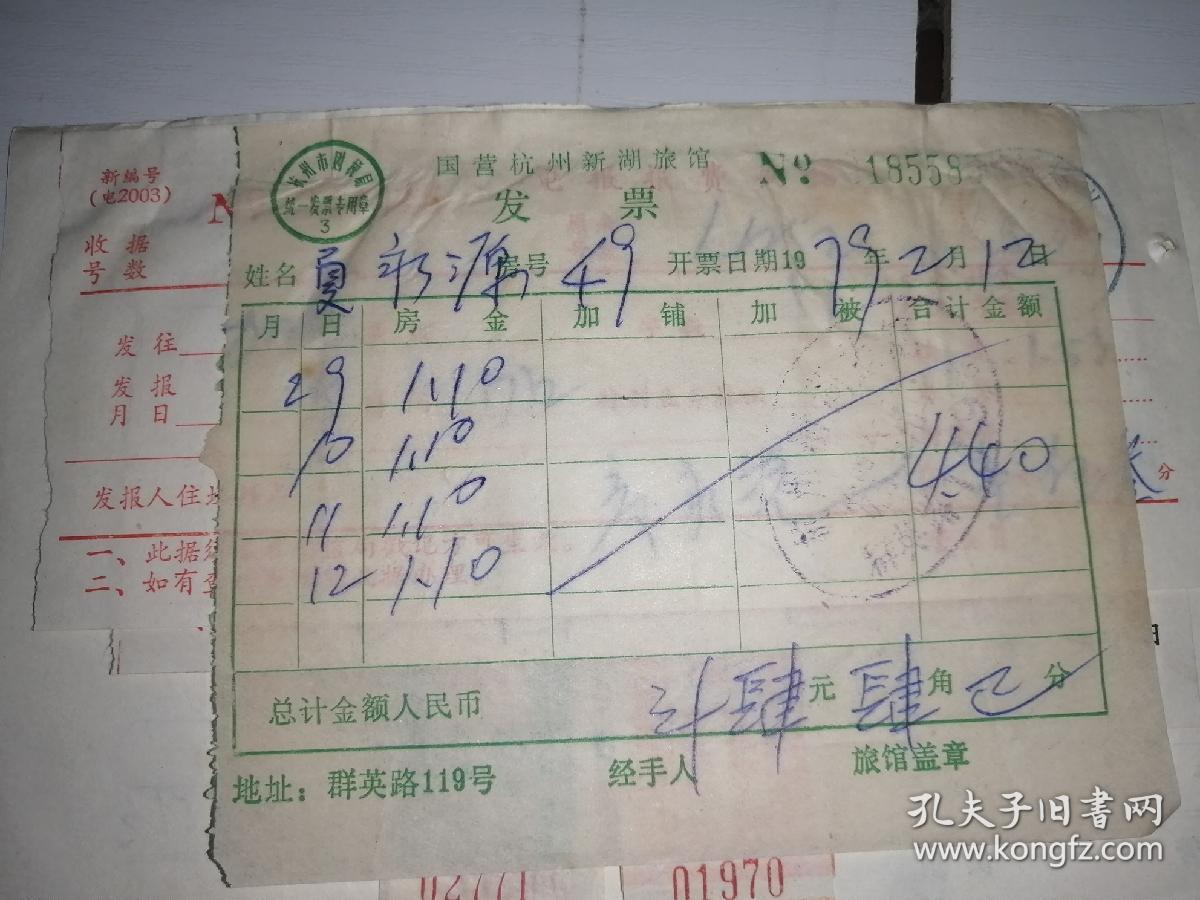 新编号
(电2003)
收据
号数
发往
发报
月日
发报人住
一、此据
二、如有
杭州市财税局
统一发票专用章
3
国营杭州新湖旅馆
№ 18558
发票
姓名 夏 源 房号 49 开票日期1979年2月12日
月 日 房金 加铺 加被 合计金额
2 9 1.10
10 1.10
11 1.10 4.40
12 1.10
总计金额人民币 计肆元肆角 分
地址：群英路119号 经手人 旅馆盖章
分
02771 01970
孔夫子旧书网
www.kongfz.com